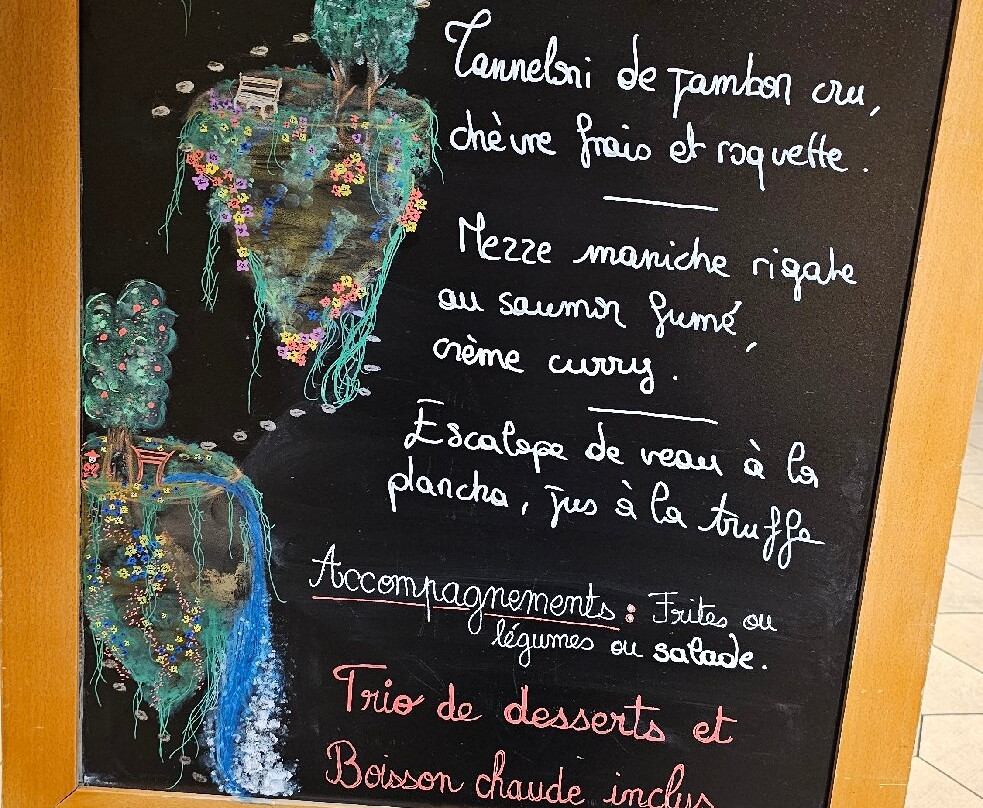 Canneloni de jambon cru,
chèvre frais et roquette.
Mezze maniche rigate
au saumon fumé,
crème curry.
Escalope de veau à la
plancha, jus à la truffe
Accompagnements : Frites ou
légumes ou salade.
Trio de desserts et
Boisson chaude inclus